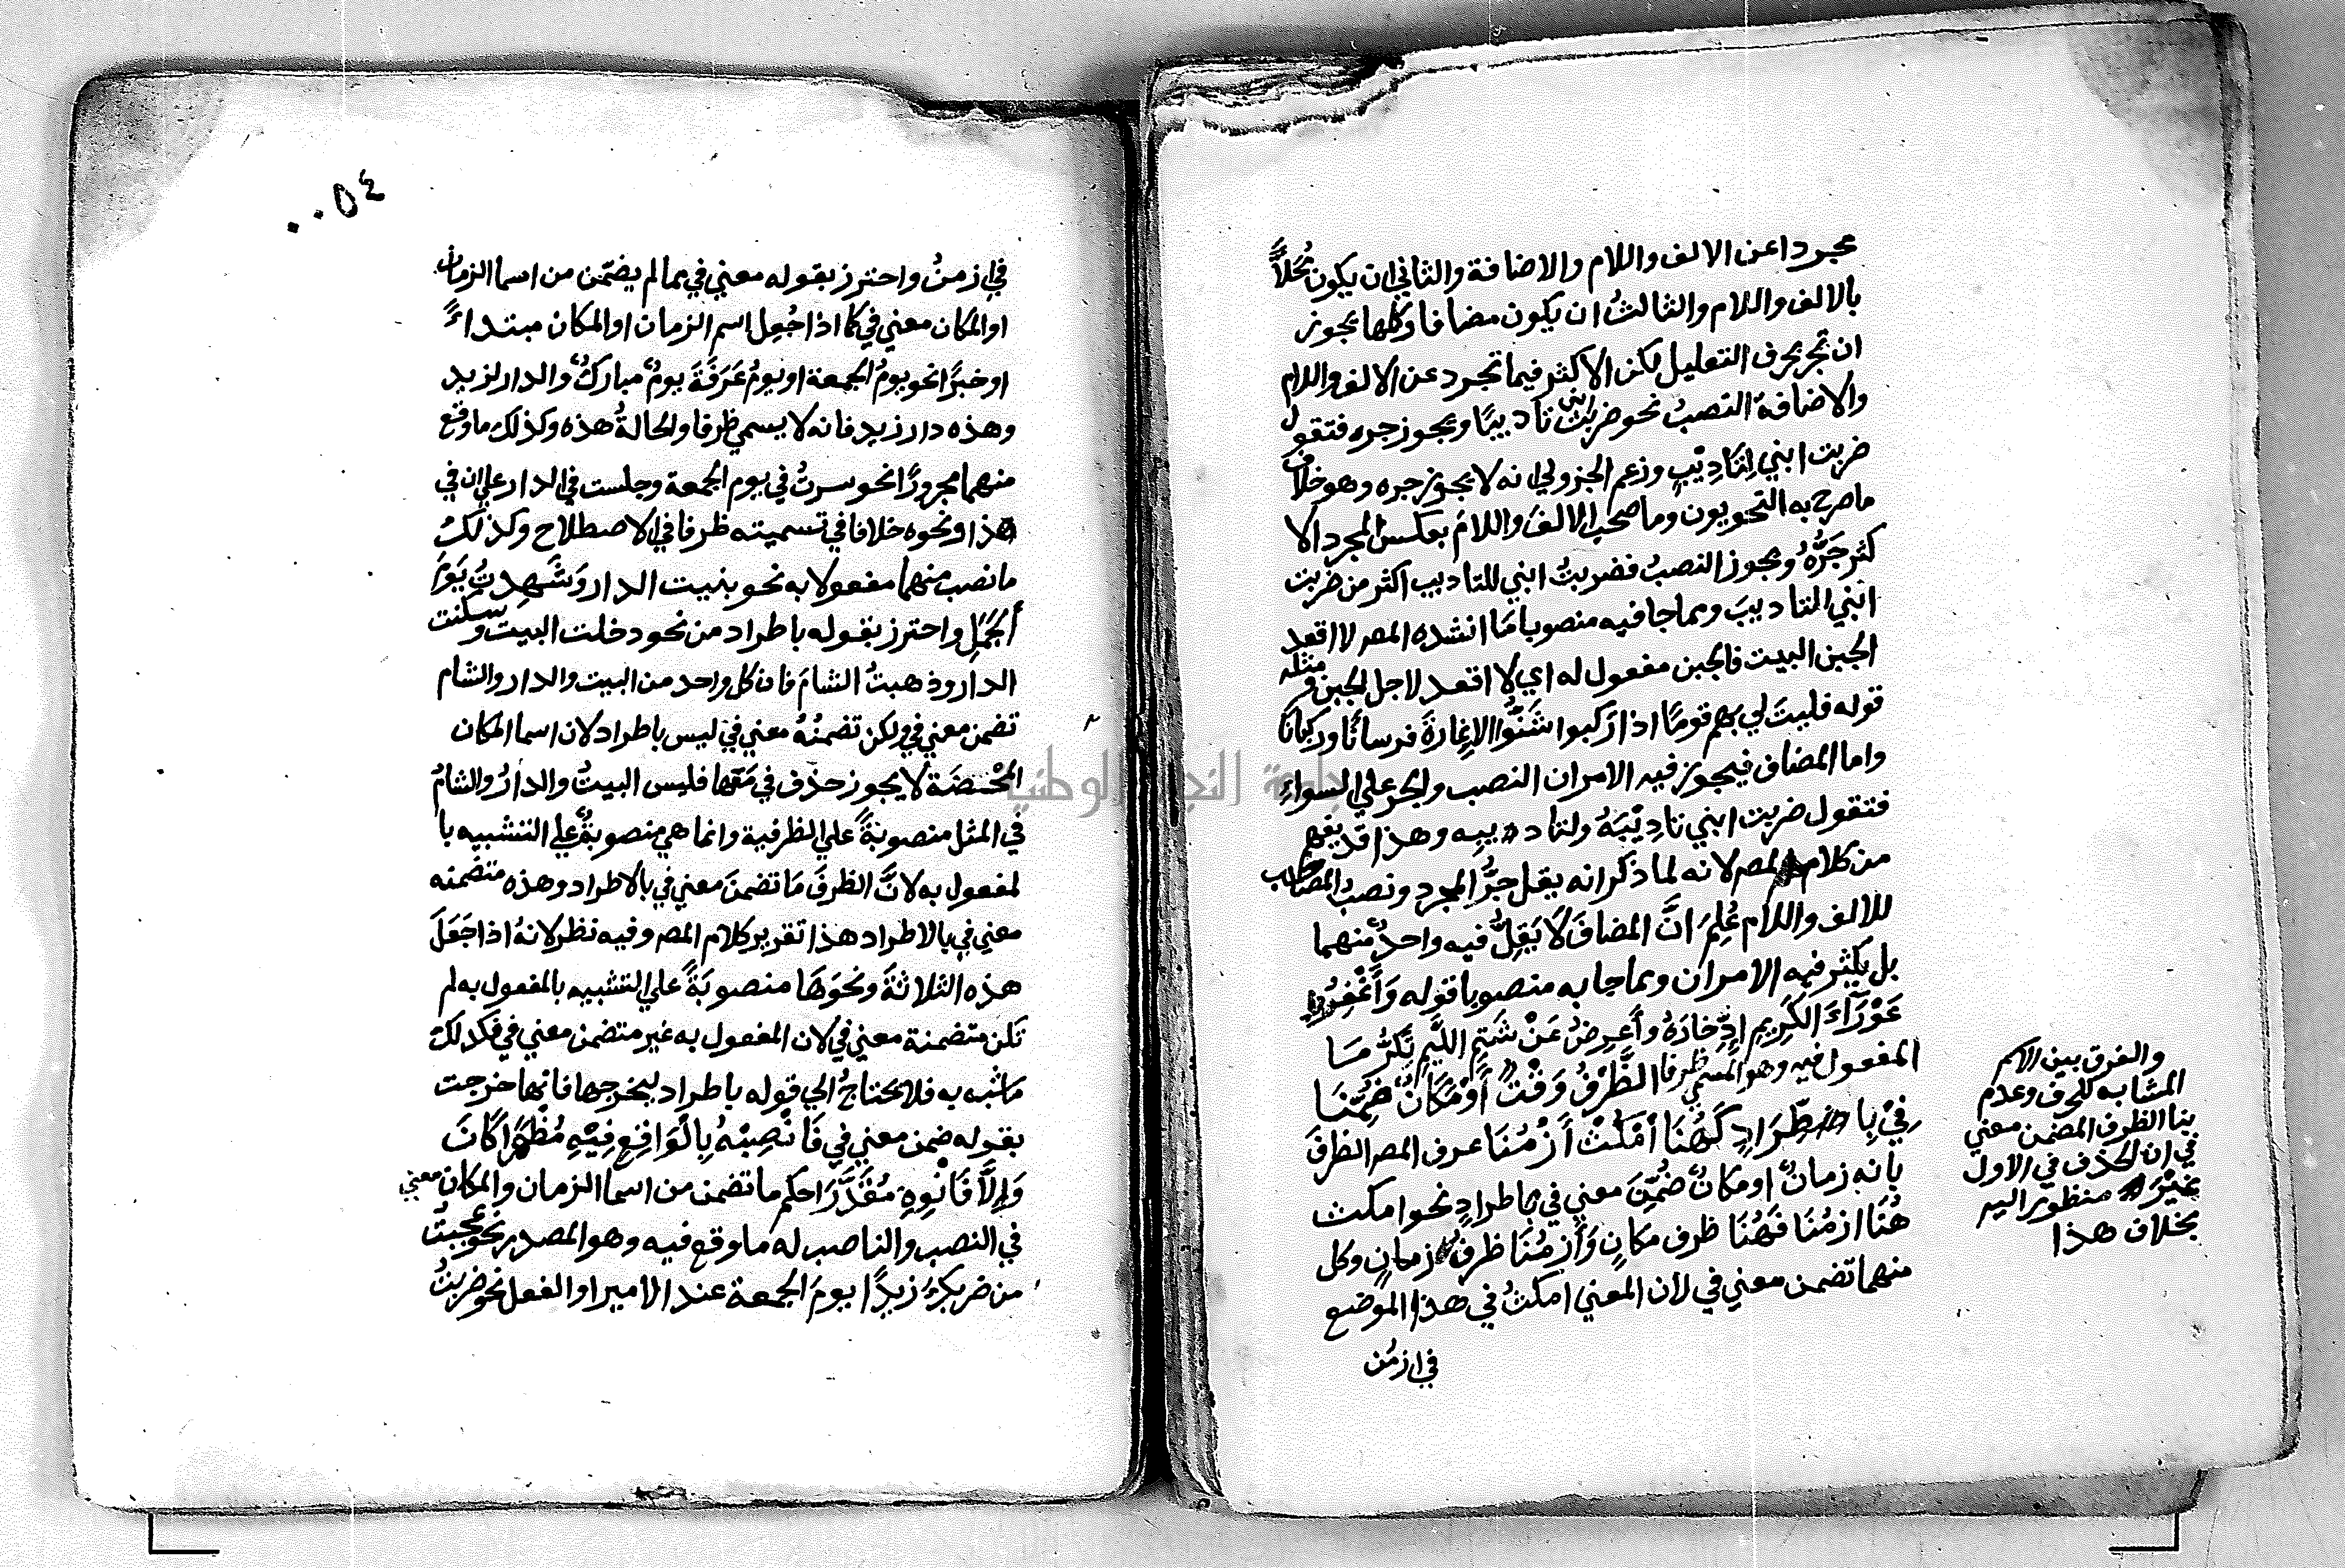 مجردا عن الالف واللام والاضافة والثاني ان يكون مُحَلًّا
بالالف واللام والثالثُ ان يكون مضافا وكلها يجوز
ان تجر بحرف التعليل لكن الاكثر فيما تجرد عن الالف واللام
والاضافة النصبُ نحو ضربت ابني تاديبًا ويجوز جره فتقول
ضربت ابني لِتَادِيْبٍ وزعم الجزولي انه لا يجوز جره وهو خلاف
ما صرح به النحويون وما صحب الالفَ واللامَ بعكس المجرد الا
كثر جَرُّهُ ويجوز النصبُ فضربتُ ابني للتاديب اكثر من ضربت
ابني التاديبَ ومما جا فيه منصوبا مَا انشده المصر لا اقعد
الجبن البيت فالجبن مفعول له اي لا اقعد لاجل الجبن ومثله
قوله فليتَ لي بهم قومًا اذا ركبوا شَنُّوا الاِغارةَ فرسانًا وركبانًا
واما المضاف فيجوز فيه الامران النصب والجر علي السواءِ
فتقول ضربت ابني تادِيْبَهُ ولتاديبِه وهذا قد يفهم
من كلام المصر لانه لما ذكر انه يقل جرُّ المجرد ونصبُ المصاحب
للالف واللام عُلِمَ اَنَّ المضافَ لَا يَقِلُّ فيه واحدٌ منهما
بل يكثر فيه الامران ومما جا به منصوبا قوله وَأَغْفِرُ
عَوْرَآءَ الكَرِيمِ ادِّخارَهُ وأُعرِضُ عَنْ شَتمِ اللَّيمِ تَكَرُّمَا
المفعول فيه وهو المسمي ظرفا الظَّرْفُ وَقْتٌ أَوْ مَكَانٌ ضُمِّنَا
فِيْ بِاطِّرَادٍ كَهُنَا اُمْكُثْ أَزْمُنَا عرف المصر الظرفَ
بانه زمانٌ او مكانٌ ضُمِّنَ معني في باطرادٍ نحو امكث
هُنَا ازمُنَا فَهُنَا ظرف مكانٍ وَأَزمُنَا ظرفُ زمانٍ وكل
منهما تضمن معني في لان المعني امكثُ في هذا الموضع
في ازمُن
والفرق بين الاسم
المشابه للحرف وعدم
بنا الظرف المضمن معني
في ان الحذف في الاول
غيْرَ منظور اليه
بخلاف هذا
٠٠٥٤
في ازمنُ واحترز بقوله معني في مما لم يضمّن من اسما الزمان
او المكان معني في كما اذا جُعِل اسم الزمان او المكان مبتداءً
او خبرًا نحو يومُ الجمعة او يومُ عَرَفَةَ يومٌ مباركٌ والدار لزيد
وهذه دار زيد فانه لا يسمي ظرفا والحالةُ هذه وكذلك ما وقع
منهما مجرورًا نحو سرتُ في يوم الجمعة وجلست في الدار علي ان في
هذا ونحوه خلافا في تسميته ظرفا في الاصطلاح وكذلك
ما نصب منهما مفعولا به نحو بنيت الدار وَشَهِدتُ يَومَ
اَلجَمَلِ واحترز بقوله باطراد من نحو دخلت البيت وسكنت
الدار وذهبتُ الشامَ فان كل واحد من البيت والدار والشام
تضمن معني في ولكن تضمنُهُ معني في ليس باطراد لان اسما المكان
المُخْتصَّة لا يجوز حذف في مَعَها فليس البيتُ والدارُ والشامُ
في المثل منصوبةً علي الظرفية وانما هي منصوبةٌ علي التشبيه با
لمفعول به لانَّ الظرفَ مَا تضمنَ معني في بالاطراد وهذه متضمنه
معني في بالاطراد هذا تقرير كلام المصر وفيه نظر لانهُ اذا جَعَلَ
هذه الثلاثةَ ونحوَهَا منصوبَةً علي التشبيه بالمفعول به لم
تكن متضمنة معني في لان المفعول به غير متضمن معني في فكذلك
ما شبه به فلا يحتاجُ الي قوله باطراد ليخرجها فانها خرجت
بقوله ضمن معني في فَانْصِبْهُ بِالْوَاقِعِ فِيْهِ مُظْهَرًا كَانَ
وَإِلَّا فَانْوِهِ مُقَدَّرَا حكم ما تضمن من اسما الزمان والمكان معني
في النصب والناصب له ما وقع فيه وهو المصدر نحو عجبتُ
من ضربكَ زيدًا يومَ الجمعة عند الامير او الفعل نحو ضربتُ
جامعة النجاح الوطنية